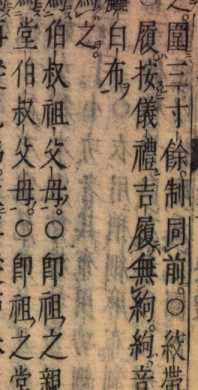 圍三寸餘制同前。○絞帶
履按儀禮吉履無絇。絇音
白布
之。
伯叔祖父母。○即祖之親
堂伯叔父母。○即祖之堂